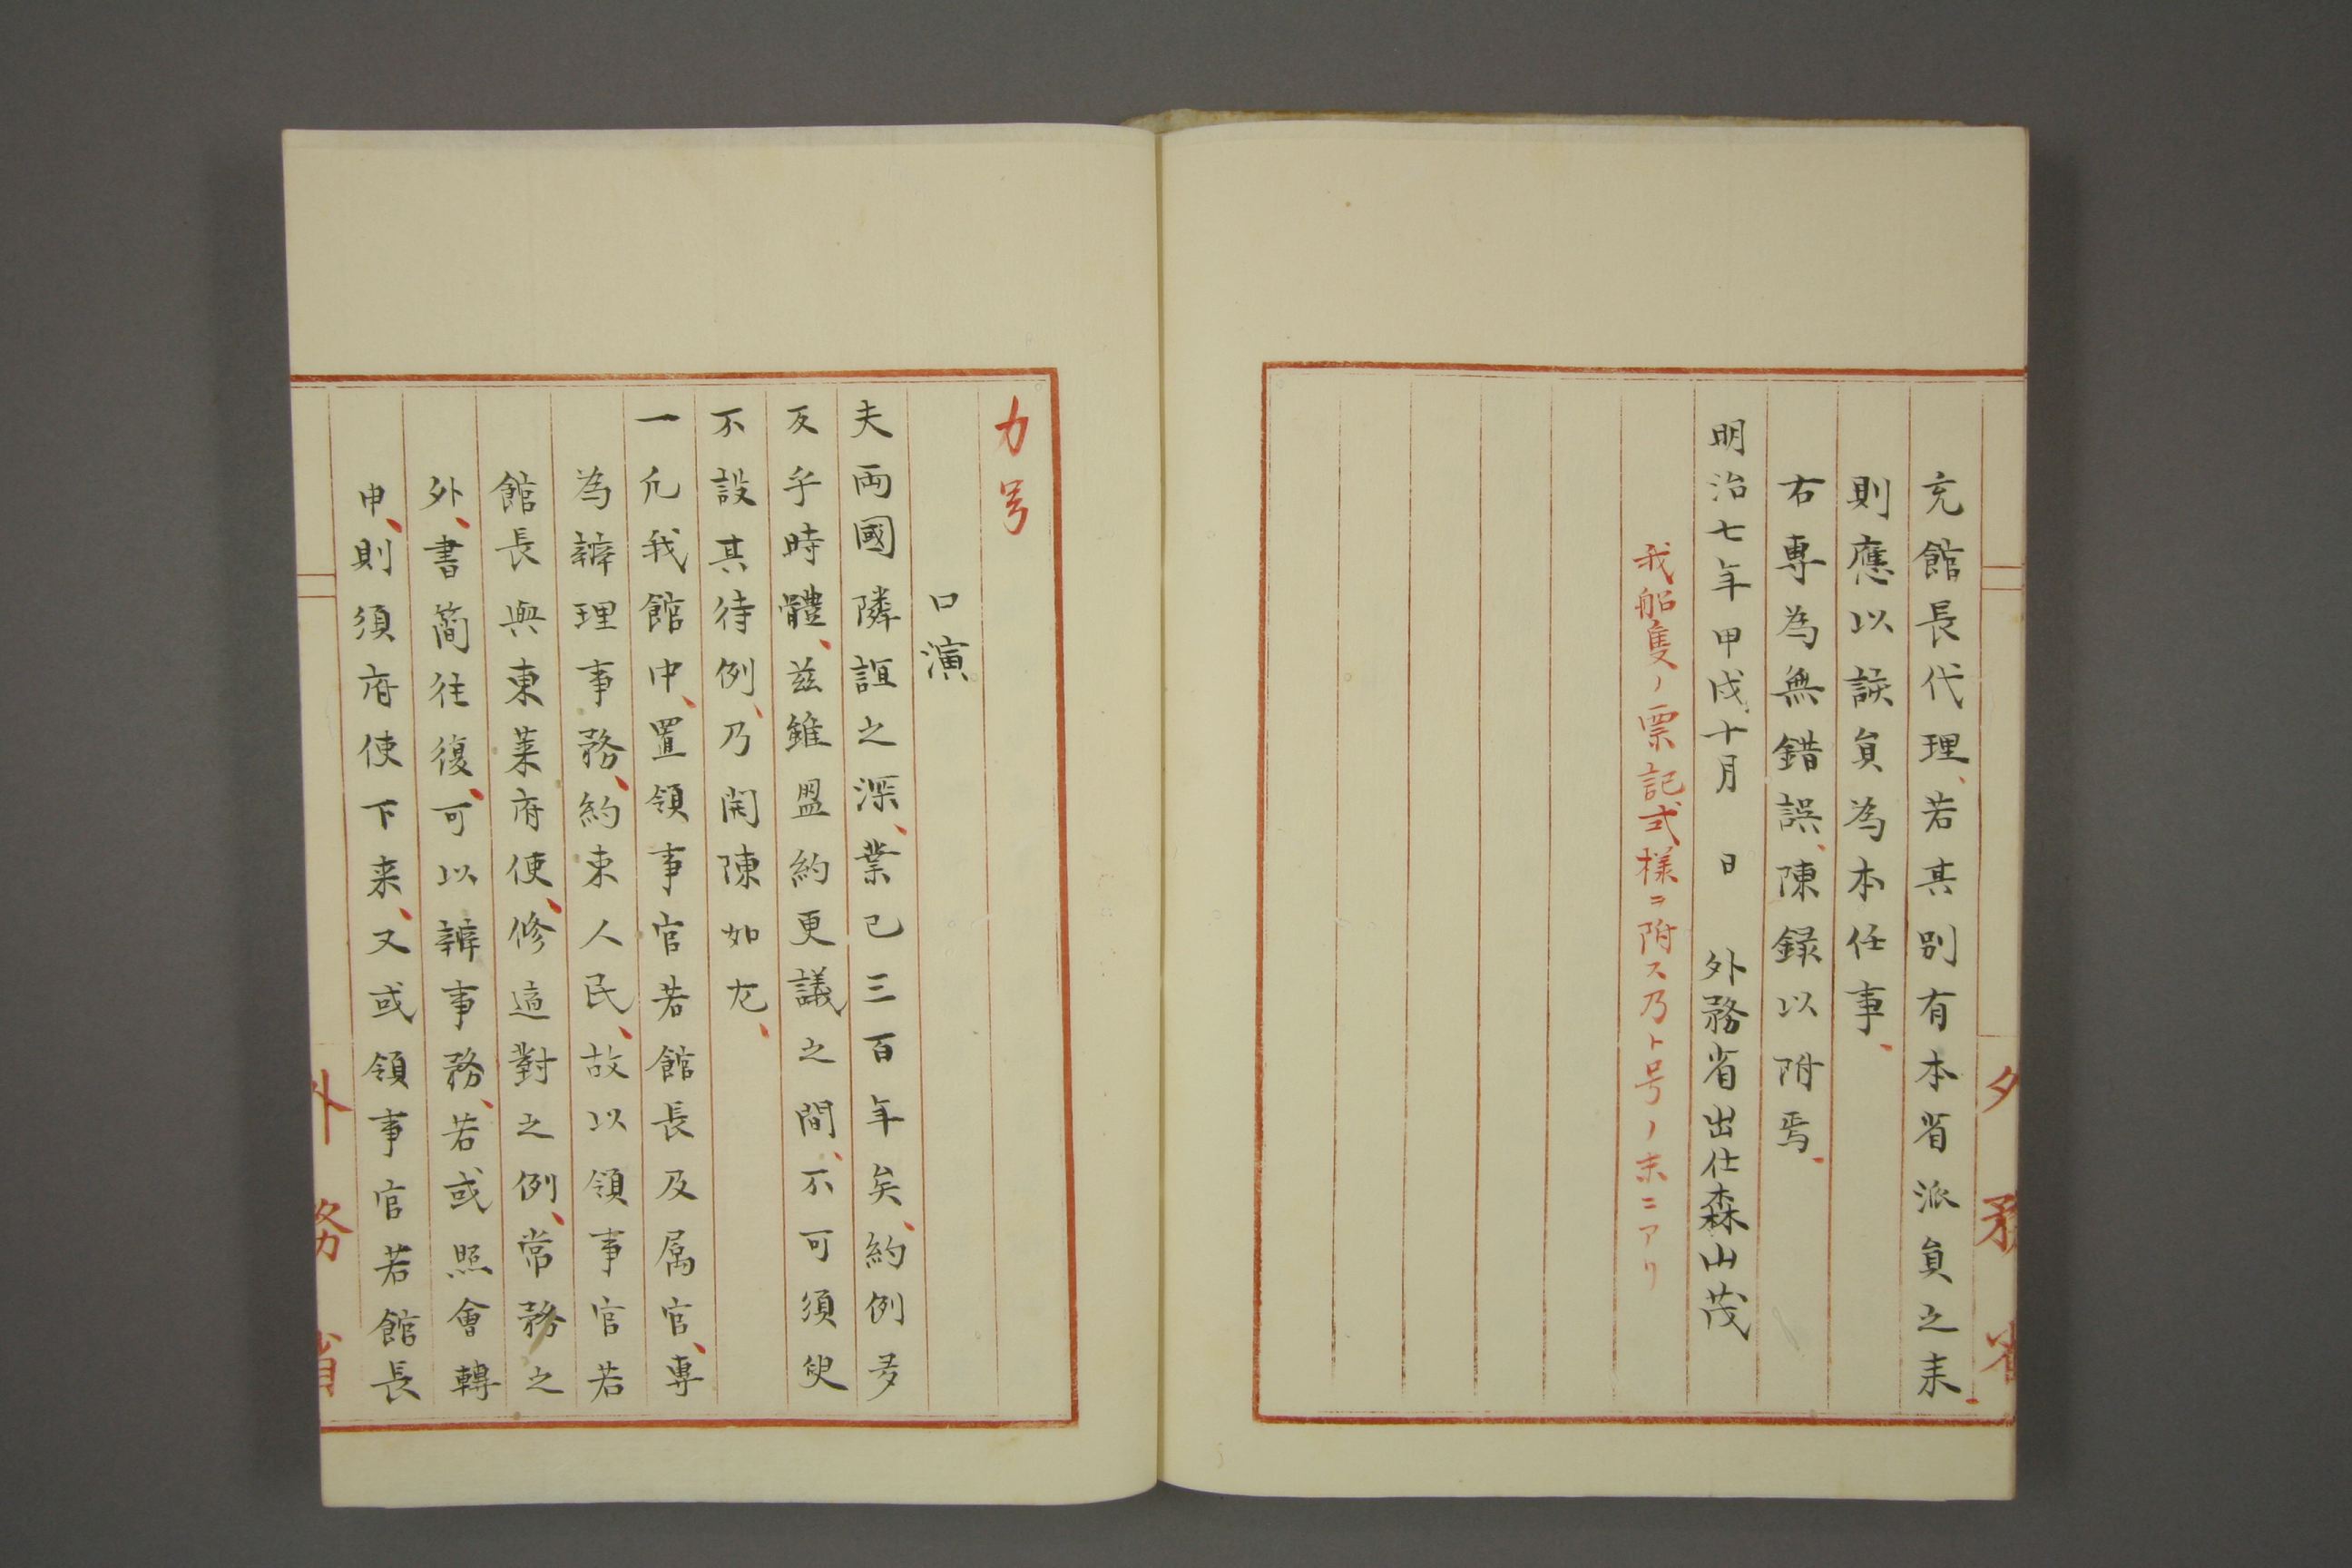 充館長代理、若其別有本省派員之来、
則應以該員為本任事、
右専為無錯誤、陳録以附焉、
明治七年甲戌十月 日 外務省出仕森山茂
我船隻ノ票記式様ヲ附ス乃ト号ノ末ニアリ
外務省
カ号
口演
夫両國隣誼之深、業已三百年矣、約例多
反乎時體、茲雖盟約更議之間、不可須臾
不設其待例、乃開陳如左、
一凡我館中、置領事官若館長及属官、専
為辨理事務、約束人民、故以領事官若
館長與東莱府使、修適對之例、常務之
外、書簡往復、可以辨事務、若或照會轉
申、則須府使下来、又或領事官若館長
外務省